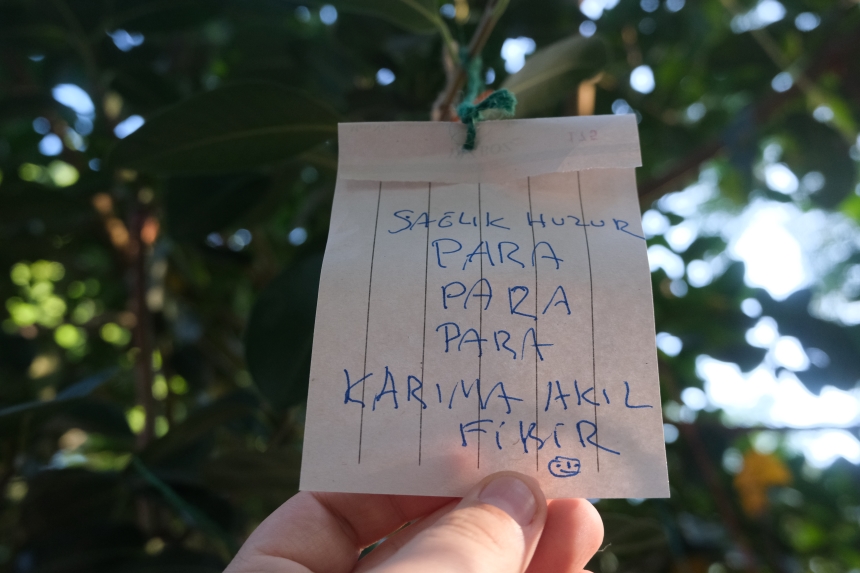 SAĞLIK HUZUR
PARA
PARA
PARA
KARIMA AKIL
FİKİR